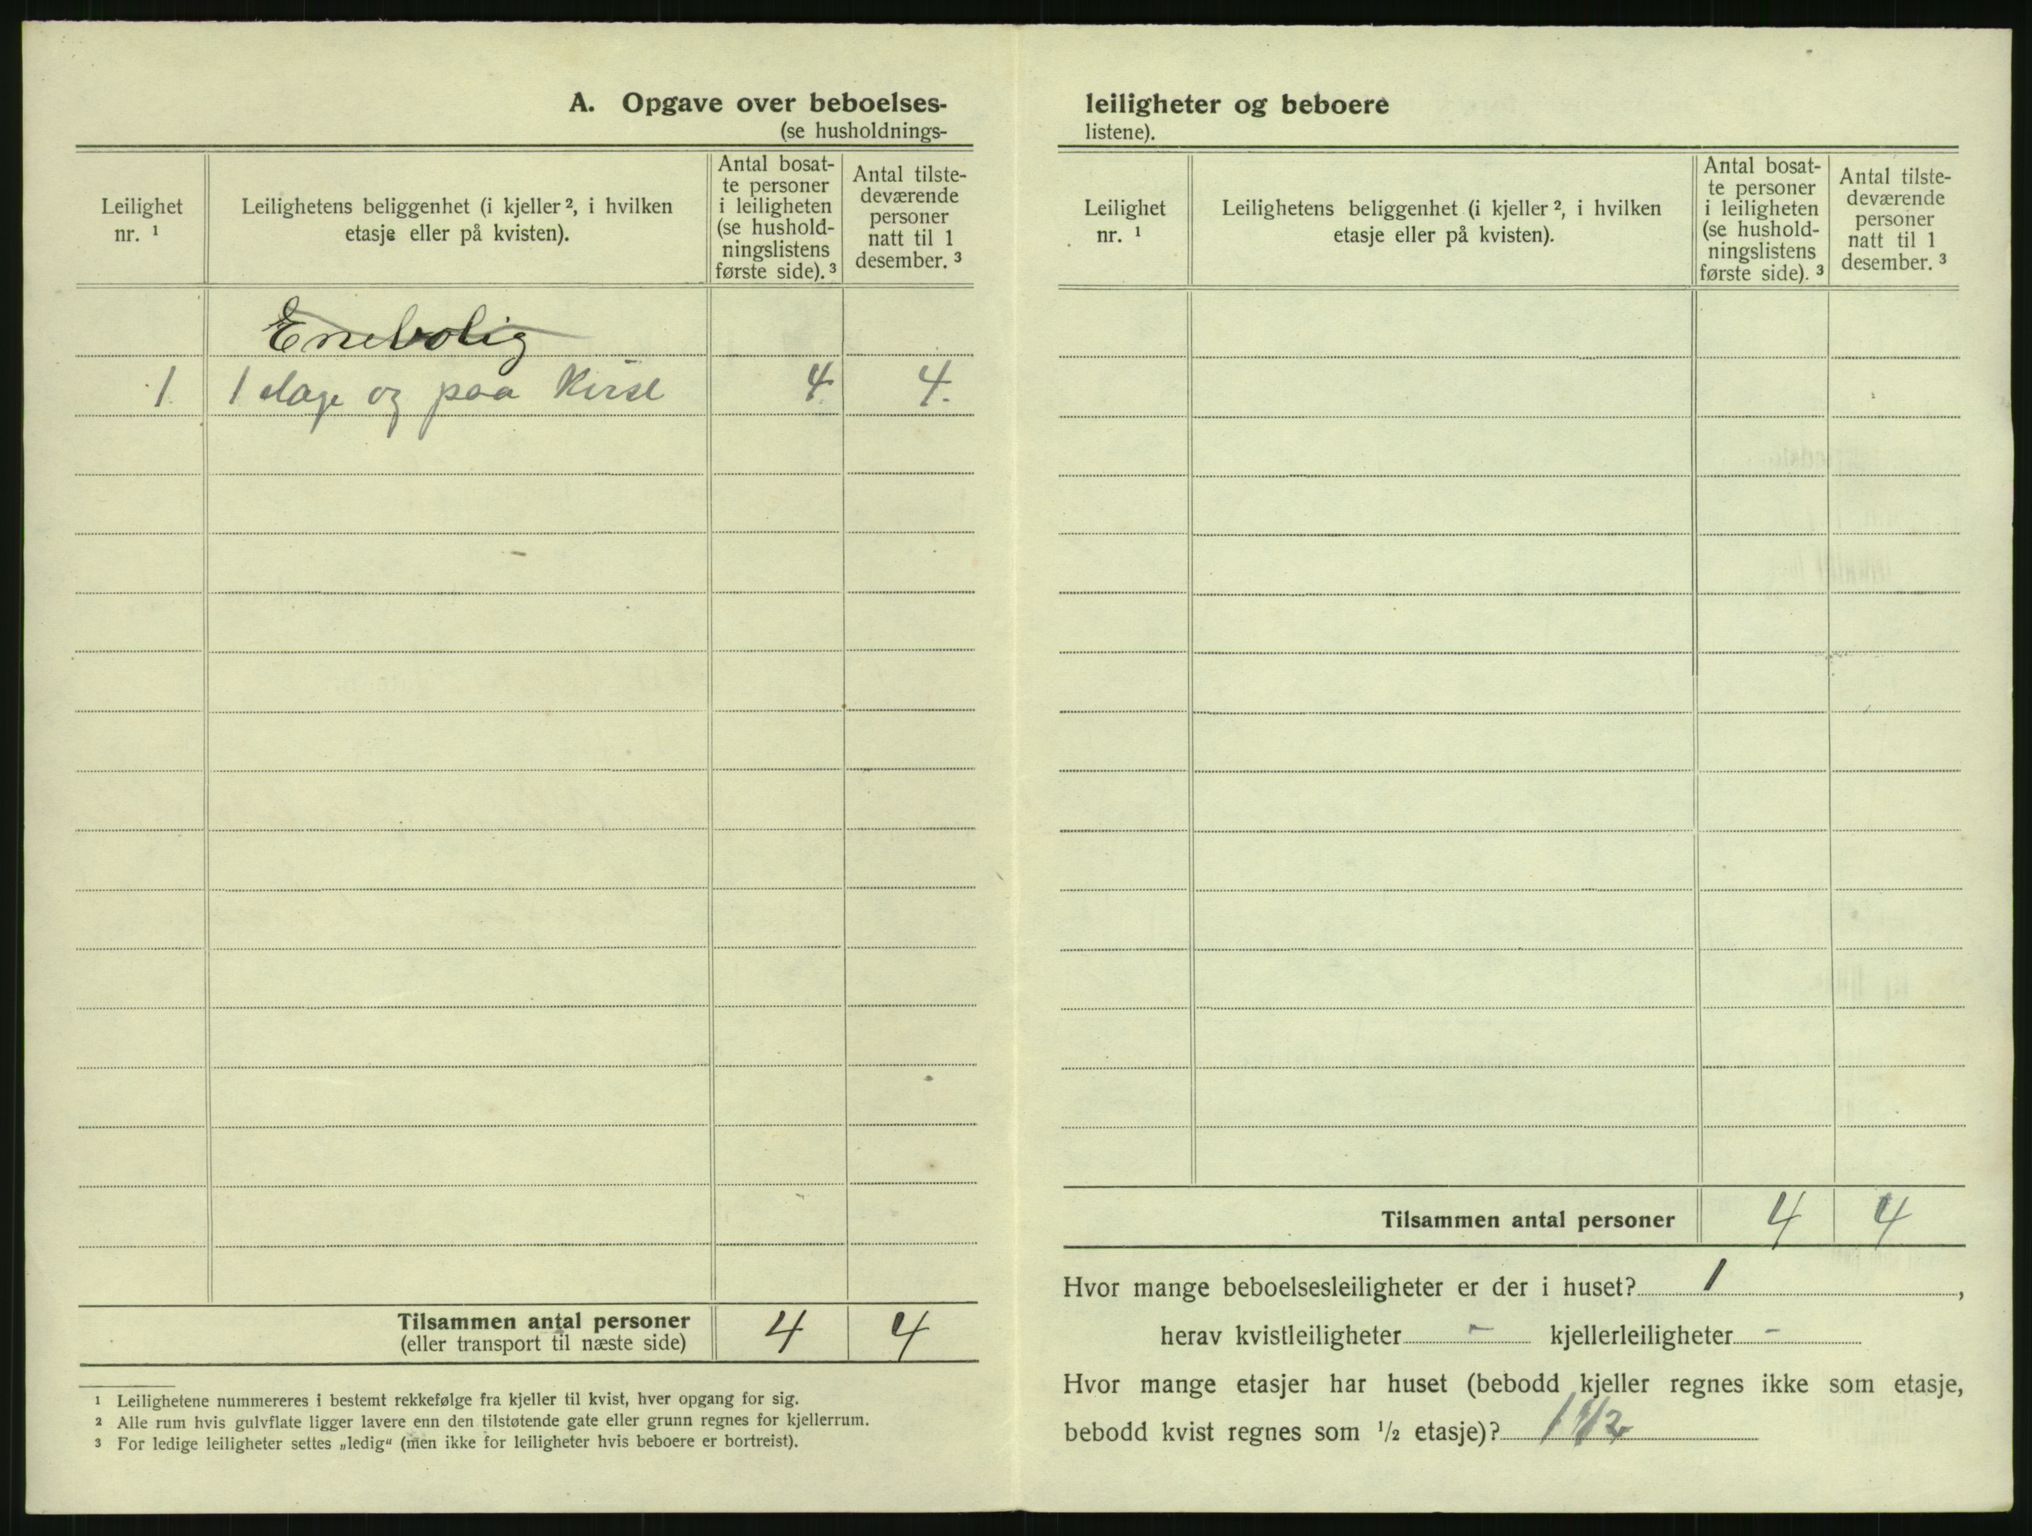 A. Opgave over beboelses-
(se husholdnings-
Leilighet
nr. ¹
Leilighetens beliggenhet (i kjeller ², i hvilken
etasje eller på kvisten).
Antal bosat-
te personer
i leiligheten
(se hushold-
ningslistens
første side). ³
Antal tilste-
deværende
personer
natt til 1
desember. ³
Enebolig
1. 1 etage og paa 4. 4.
Tilsammen antal personer 4 4
(eller transport til næste side)
¹ Leilighetene nummereres i bestemt rekkefølge fra kjeller til kvist, hver opgang for sig.
² Alle rum hvis gulvflate ligger lavere enn den tilstøtende gate eller grunn regnes for kjellerrum.
³ For ledige leiligheter settes „ledig“ (men ikke for leiligheter hvis beboere er bortreist).
leiligheter og beboere
listene).
Leilighet
nr. ¹
Leilighetens beliggenhet (i kjeller ², i hvilken
etasje eller på kvisten).
Antal bosat-
te personer
i leiligheten
(se hushold-
ningslistens
første side). ³
Antal tilste-
deværende
personer
natt til 1
desember. ³
Tilsammen antal personer 4 4
Hvor mange beboelsesleiligheter er der i huset? 1 ,
herav kvistleiligheter - kjellerleiligheter -
Hvor mange etasjer har huset (bebodd kjeller regnes ikke som etasje,
bebodd kvist regnes som ½ etasje)? 1 1/2